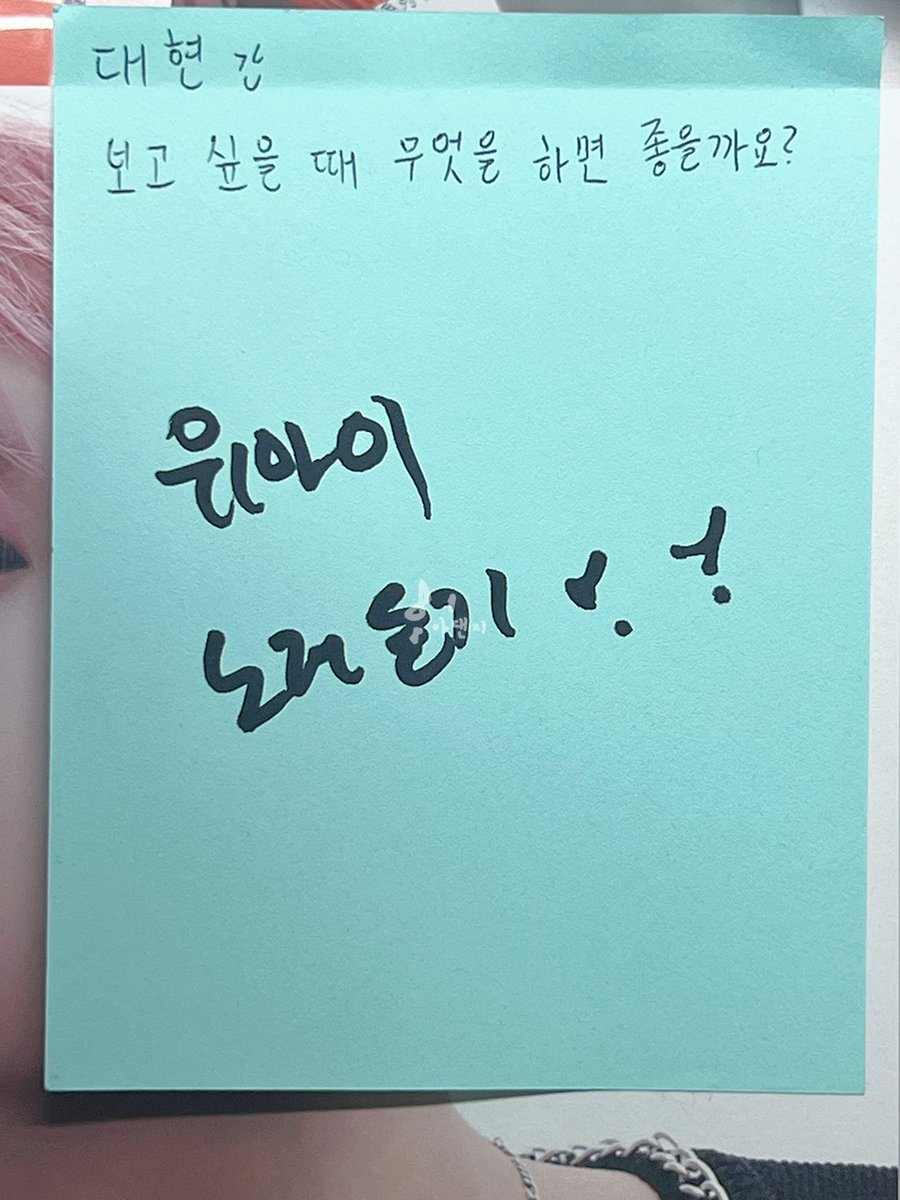 대현 간
보고 싶을 때 무엇을 하면 좋을까요?
위아이
노래 듣기!!